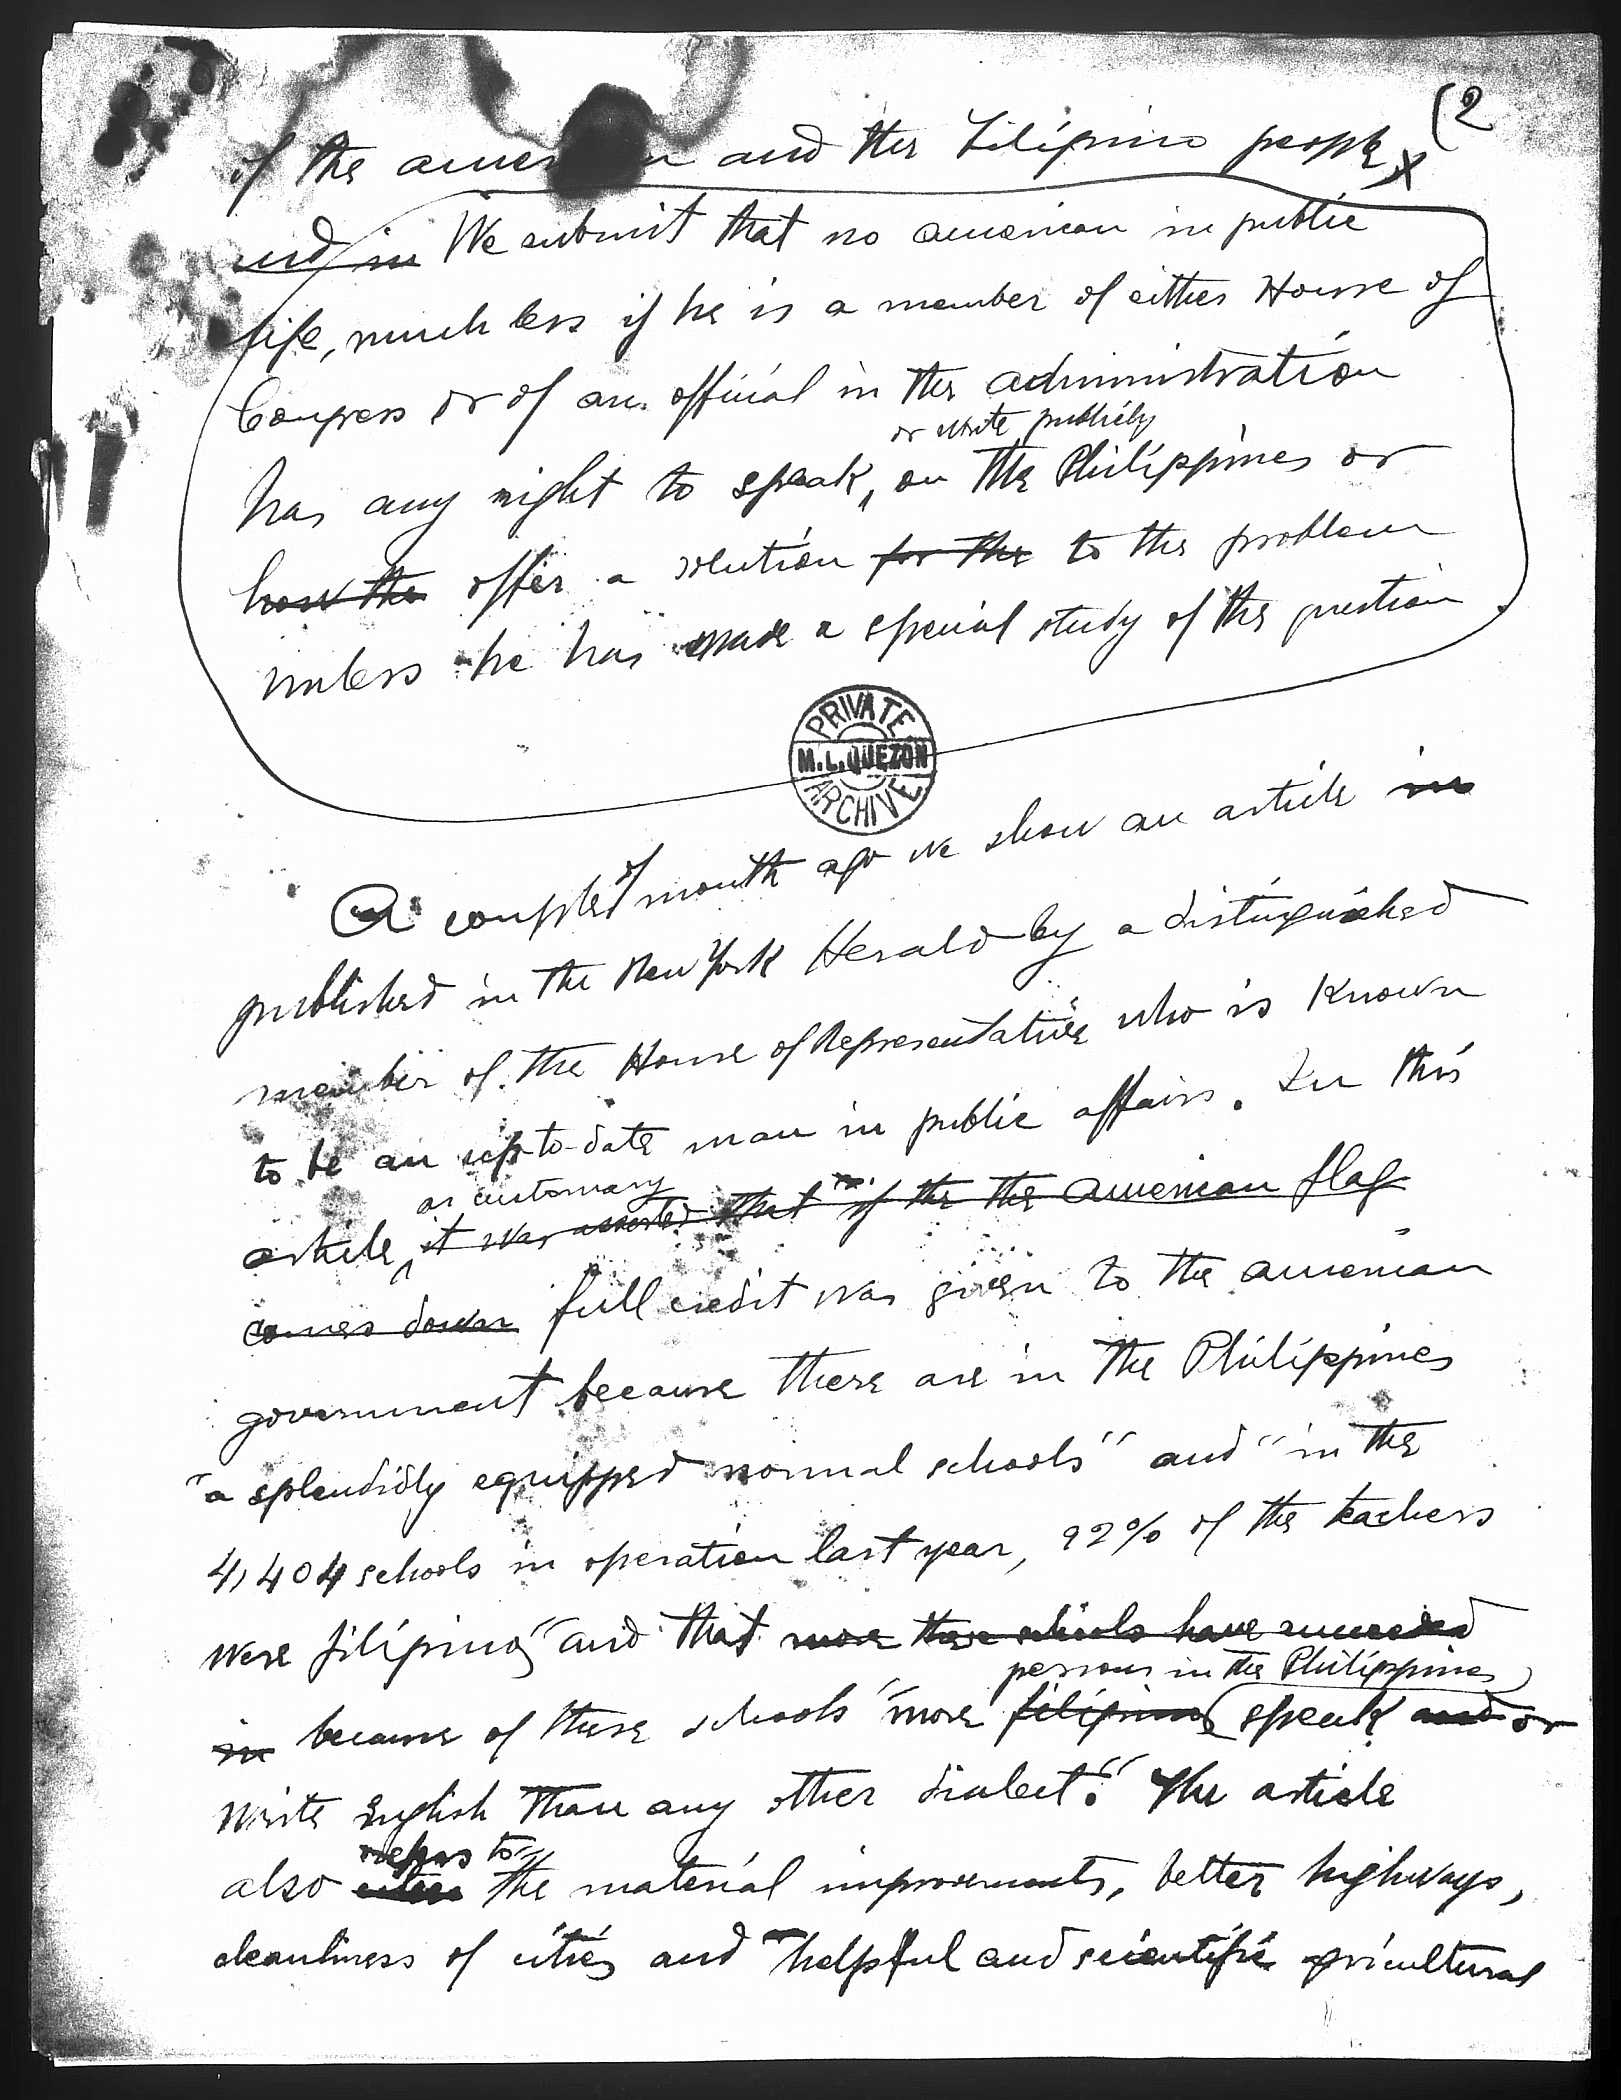 (2
of the american and the Filipino people x
and in We submit that no american in public
life, much less if he is a member of either House of
Congress or of an official in the administration
or write publicly
has any right to speak, on the Philippines or
how the offer a solution for the to the problem
unless he has made a special study of the question
PRIVATE
M. L. QUEZON
ARCHIVE
A couple of month ago we show an article in
published in the New York Herald by a distinguished
member of the House of Representative who is known
to be an up-to-date man in public affairs. In this
as customary
article, it was asserted that if the the american flag
comes down full credit was given to the american
government because there are in the Philippines
"a splendidly equipped normal schools" and "in the
4,404 schools in operation last year, 92% of the teachers
were filipinos" and that more these schools have succeeded
persons in the Philippines
in because of these schools "more filipinos speak and or
write English than any other dialect." The article
refers to
also cites the material improvements, better highways,
cleanliness of cities and "helpful and scientific agricultural